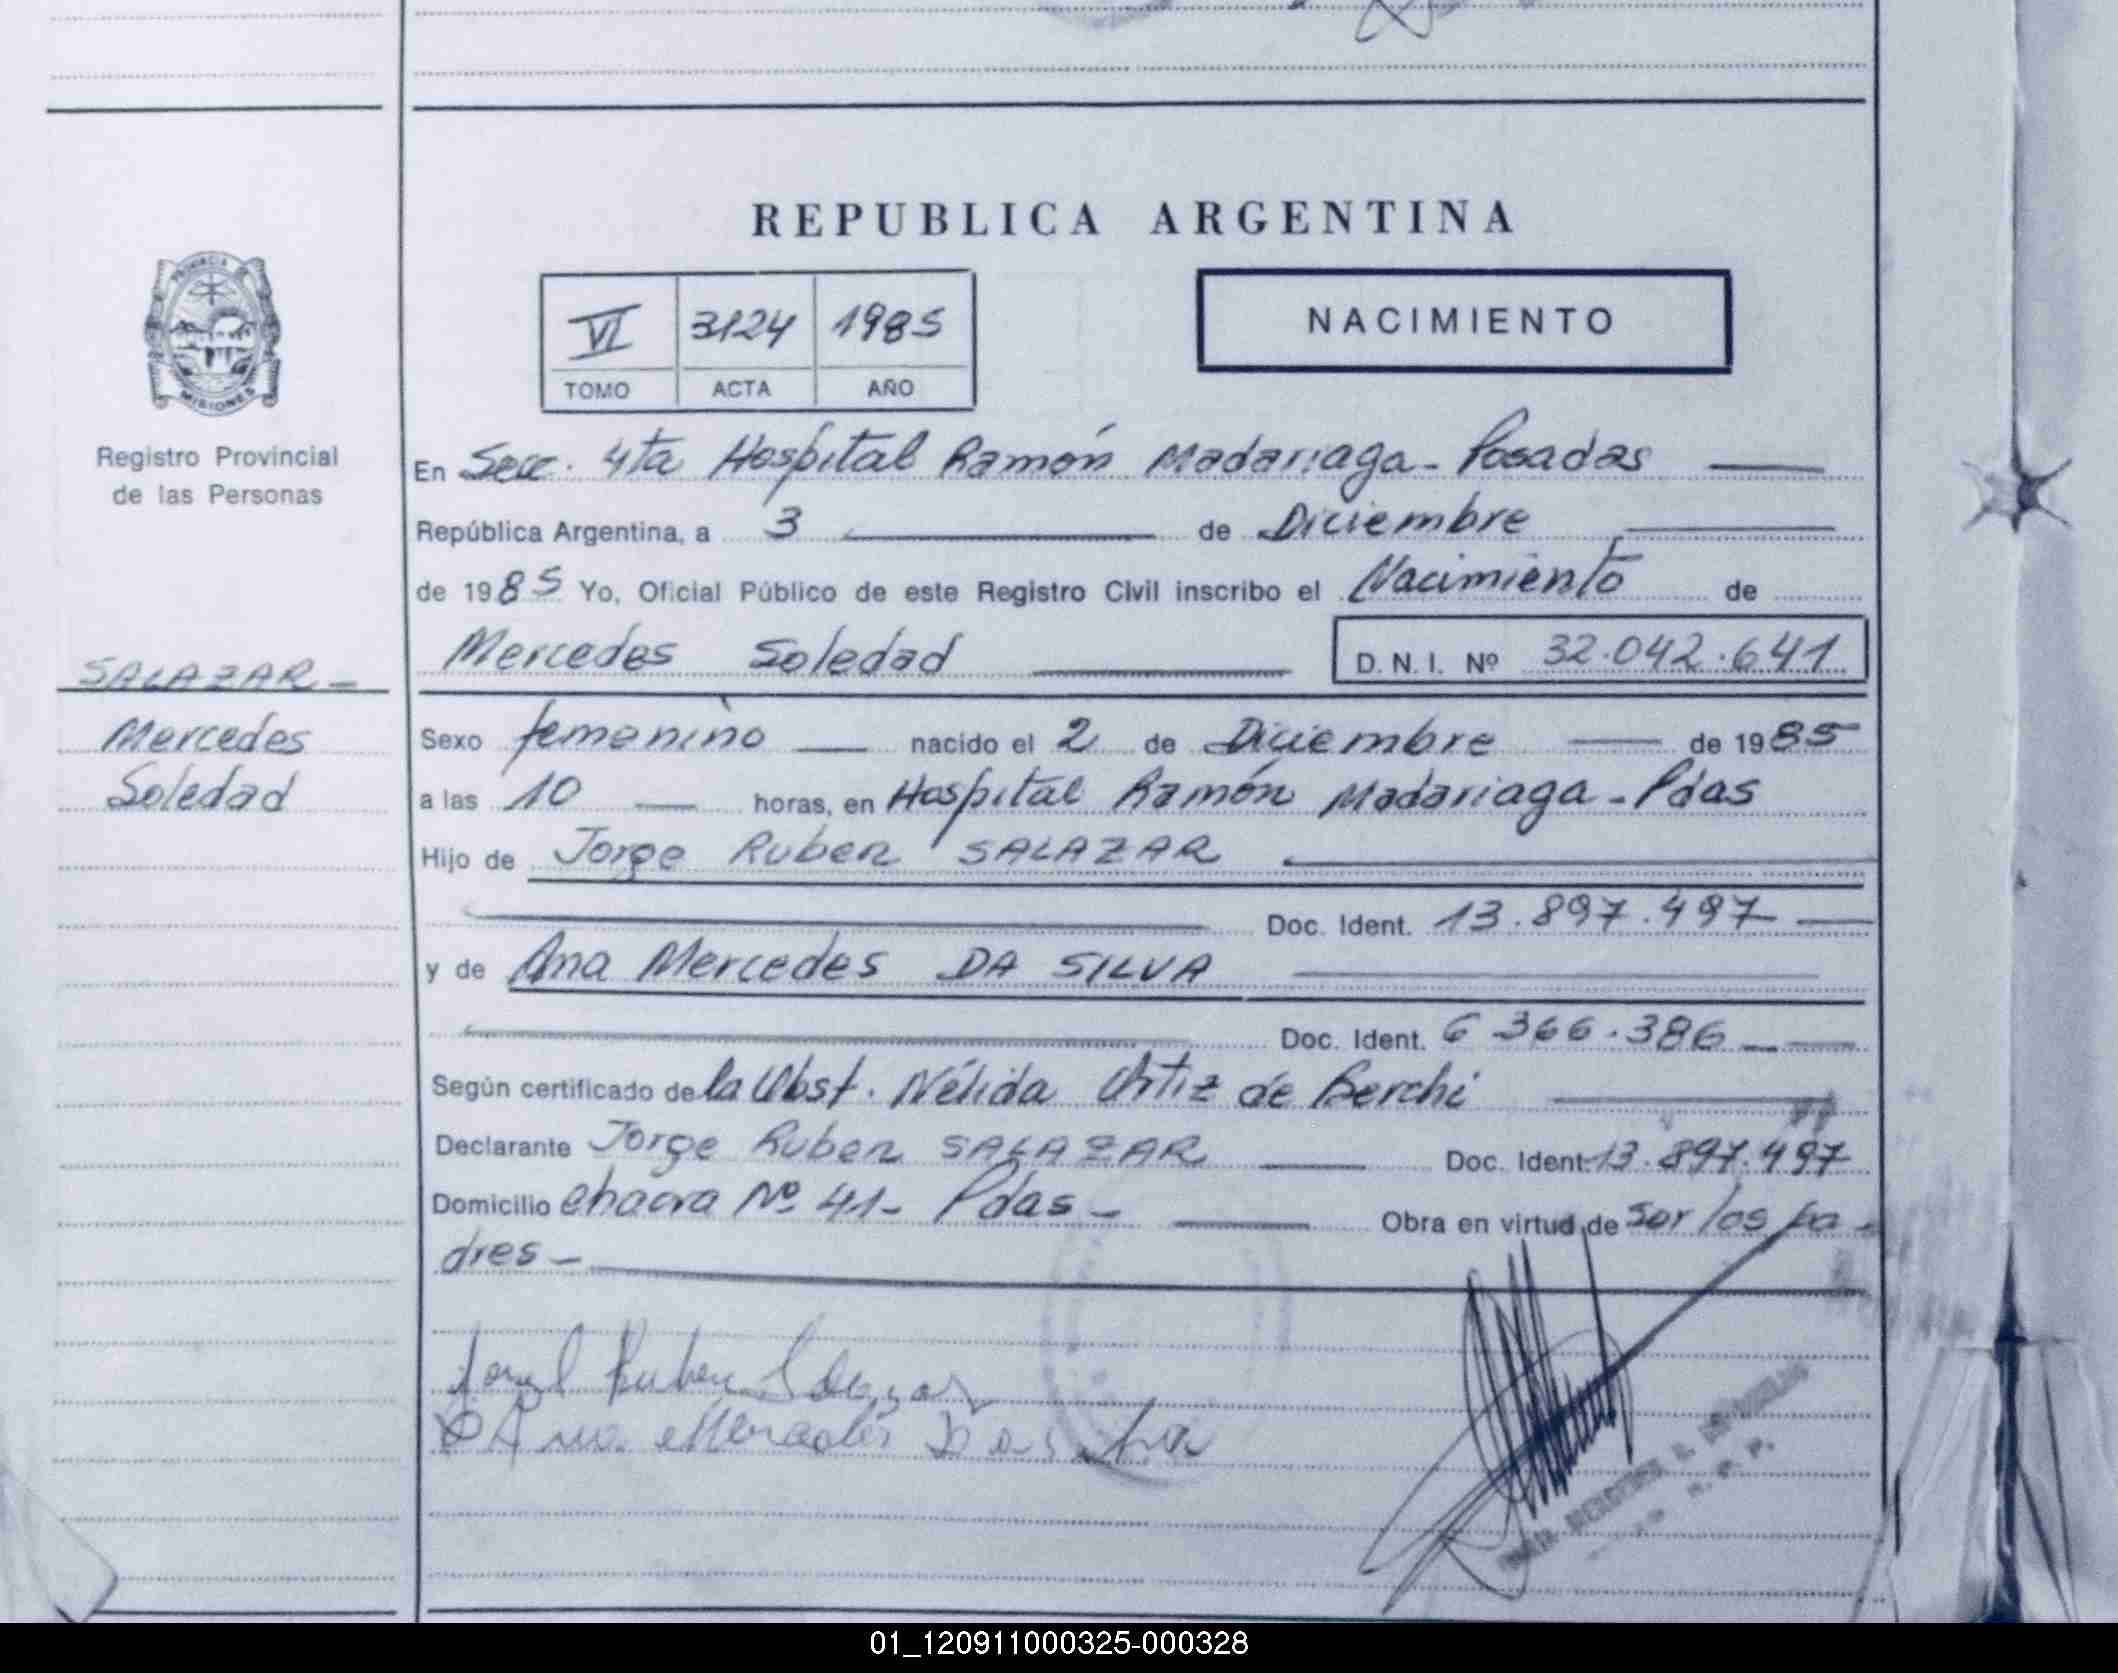 REPUBLICA ARGENTINA
PROVINCIA DE
MISIONES
VI 3124 1985
TOMO ACTA AÑO
NACIMIENTO
Registro Provincial
de las Personas
En Secc. 4ta Hospital Ramón Madariaga - Posadas
República Argentina, a 3 de Diciembre
de 1985 Yo, Oficial Público de este Registro Civil inscribo el Nacimiento de
Mercedes Soledad D. N. I. Nº 32.042.641
SALAZAR -
Mercedes
Soledad
Sexo femenino nacido el 2 de Diciembre de 1985
a las 10 horas, en Hospital Ramón Madariaga - Pdas
Hijo de Jorge Ruben SALAZAR
Doc. Ident. 13.897.497
y de Ana Mercedes DA SILVA
Doc. Ident. 6 366.386
Según certificado de la Obst. Nélida Ortiz de Berchi
Declarante Jorge Ruben SALAZAR Doc. Ident. 13.897.497
Domicilio chacra Nº 41 - Pdas - Obra en virtud de ser los pa-
dres -
Ruben
Ana Mercedes Da Silva
MERCEDES
R. P. P.
01_120911000325-000328